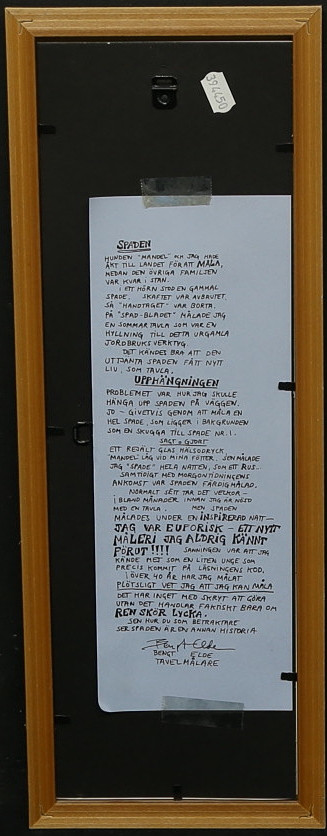 394450
SPADEN
HUNDEN "MANDEL" OCH JAG HADE
ÅKT TILL LANDET FÖR ATT MÅLA,
MEDAN DEN ÖVRIGA FAMILJEN
VAR KVAR I STAN.
I ETT HÖRN STOD EN GAMMAL
SPADE. SKAFTET VAR AVBRUTET,
SÅ "HANDTAGET" VAR BORTA.
PÅ "SPAD-BLADET" MÅLADE JAG
EN SOMMARTAVLA SOM VAR EN
HYLLNING TILL DETTA URGAMLA
JORDBRUKSVERKTYG.
DET KÄNDES BRA ATT DEN
UTTJÄNTA SPADEN FÅTT NYTT
LIV, SOM TAVLA.
UPPHÄNGNINGEN
PROBLEMET VAR HUR JAG SKULLE
HÄNGA UPP SPADEN PÅ VÄGGEN.
JO - GIVETVIS GENOM ATT MÅLA EN
HEL SPADE, SOM LIGGER I BAKGRUNDEN
SOM EN SKUGGA TILL SPADE NR. 1.
SAGT & GJORT
ETT REJÄLT GLAS HÄLSODRYCK.
"MANDEL" LÅG VID MINA FÖTTER. SEN MÅLADE
JAG "SPADE" HELA NATTEN, SOM ETT RUS.
SAMTIDIGT MED MORGONTIDNINGENS
ANKOMST VAR SPADEN FÄRDIGMÅLAD.
NORMALT SETT TAR DET VECKOR -
I BLAND MÅNADER INNAN JAG ÄR NÖJD
MED EN TAVLA. MEN SPADEN
MÅLADES UNDER EN INSPIRERAD NATT -
JAG VAR EUFORISK - ETT NYTT
MÅLERI JAG ALDRIG KÄNNT
FÖRUT!!!! SANNINGEN VAR ATT JAG
KÄNDE MET SOM EN LITEN UNGE SOM
PRECIS KOMMIT PÅ LÄSNINGENS KOD.
I ÖVER 40 ÅR HAR JAG MÅLAT
PLÖTSLIGT VET JAG ATT JAG KAN MÅLA
DET HAR INGET MED SKRYT ATT GÖRA
UTAN DET HANDLAR FAKTISKT BARA OM
REN SKÖR LYCKA.
SEN HUR DU SOM BETRAKTARE
SER SPADEN ÄR EN ANNAN HISTORIA
Bengt Elde
BENGT ELDE
TAVELMÅLARE